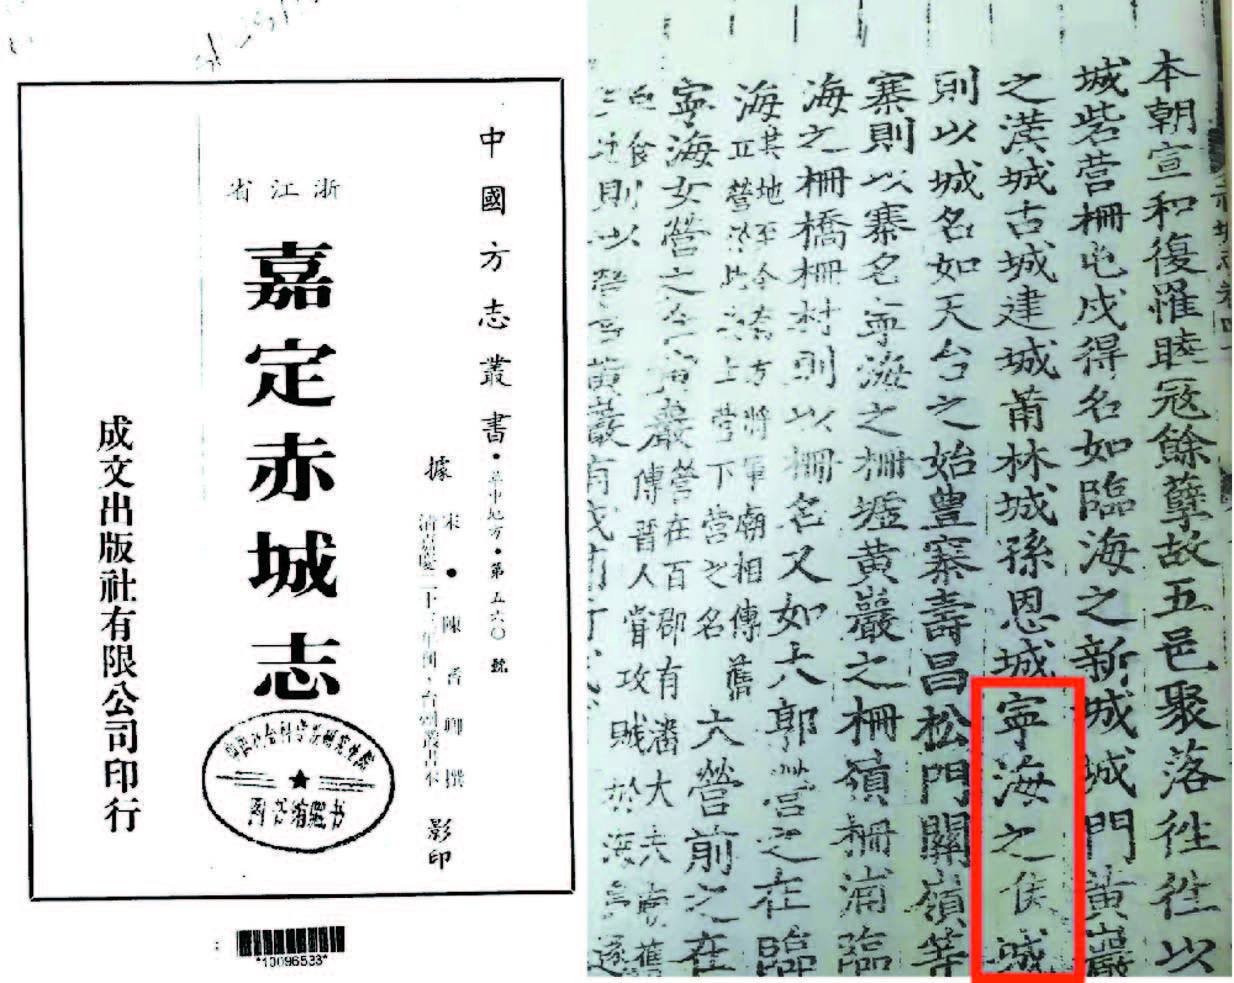 中國方志叢書·華中地方·第五六〇號
據
宋·陳耆卿撰
清嘉慶二十三年刊·台州叢書本
影印
浙江省
嘉定赤城志
成文出版社有限公司印行
*10096533*
本朝宣和復罹睦寇餘孽故五邑聚落徃徃以
城砦营柵屯戍得名如臨海之新城城門黄巖
之漢城古城建城莆林城孫恩城寕海之矦城
則以城名如天台之始豊寨壽昌松門關嶺等
寨則以寨名寕海之柵墟黄巖之柵嶺柵浦臨
海之柵橋柵村則以柵名又如大郭营之在臨
海
其地至今
方將軍廟相傳舊
立營於此
上营下营之名
大营前之在
寕海女营之在黄巖
营在百郡有潘大
傳晉人甞攻賊於海
則以营
黄巖有戍